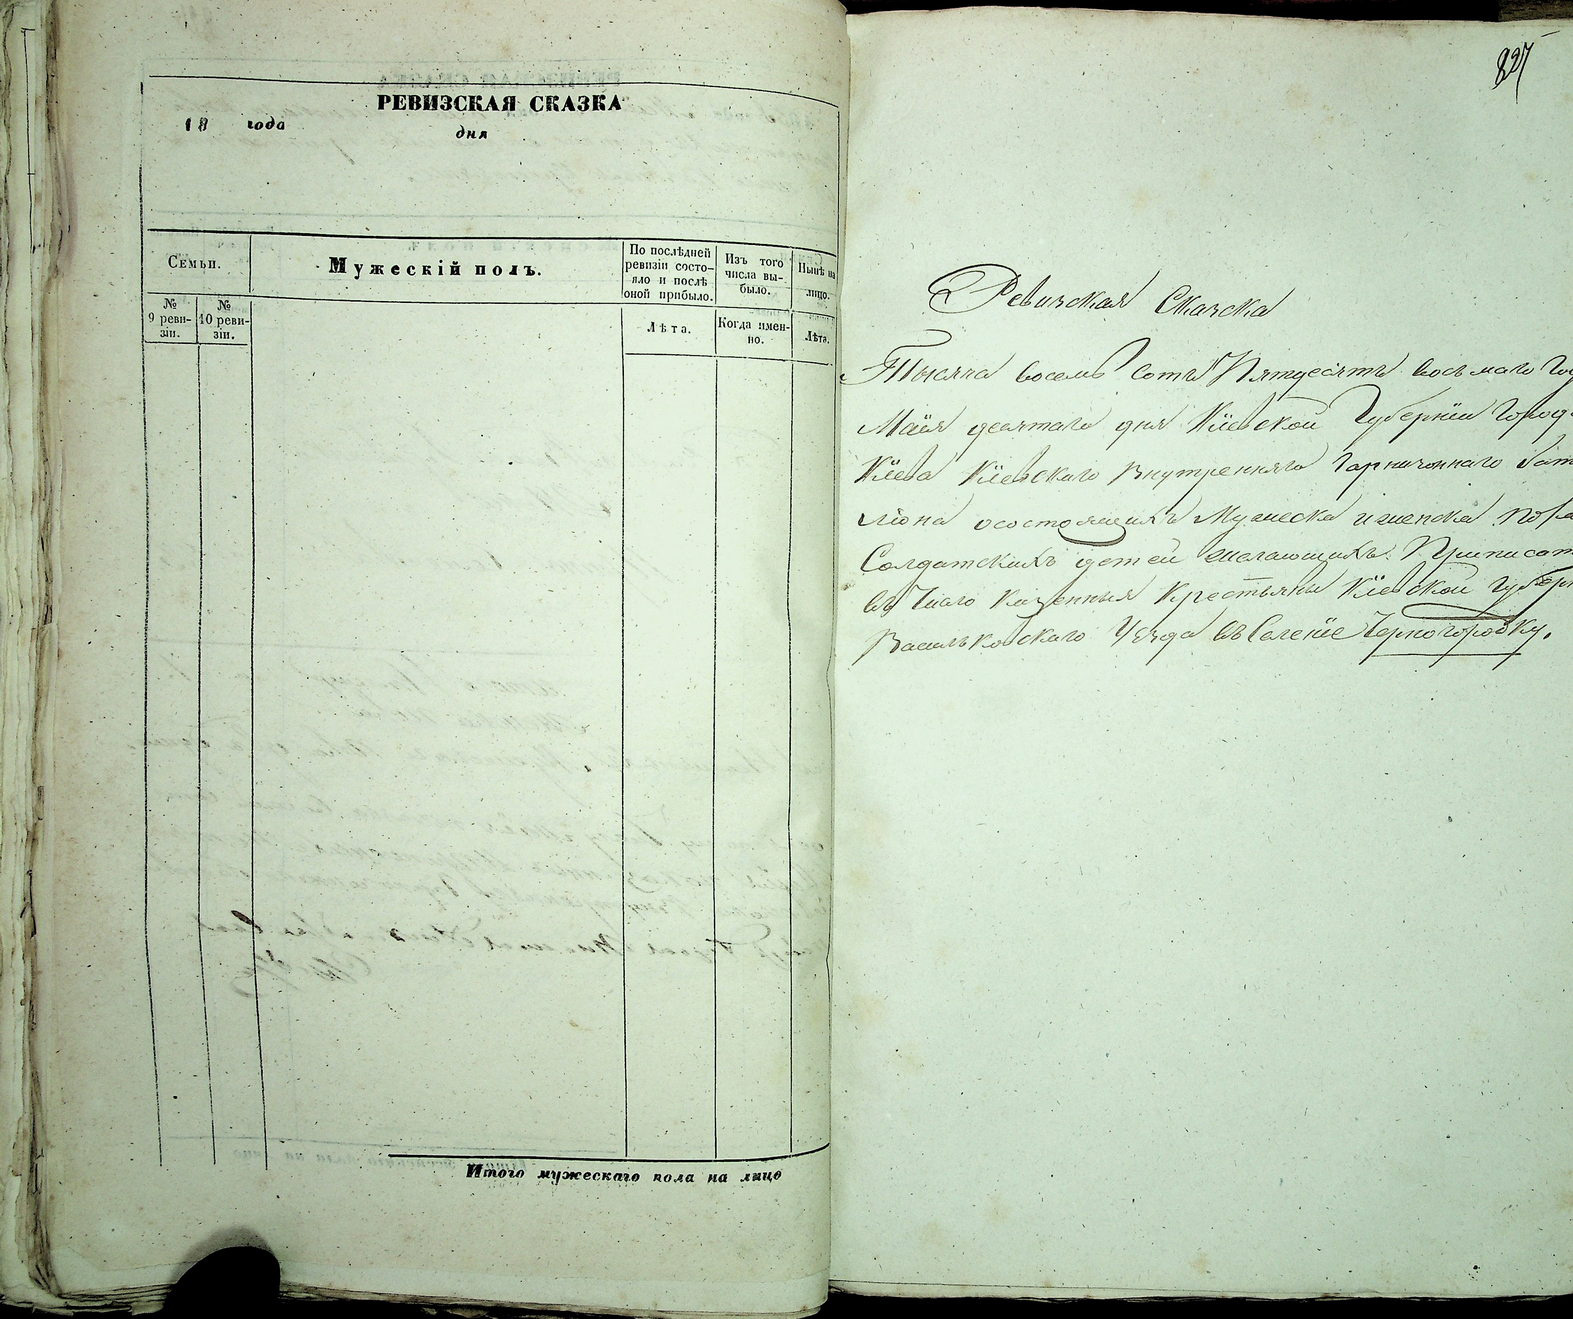 РЕВИЗСКАЯ СКАЗКА
18 года
дня
Семьи.
Мужескій полъ.
По послѣдней
ревизіи состо-
яло и послѣ
оной прибыло.
Изъ того
числа вы-
было.
Нынѣ на
лицо.
№
9 реви-
зіи.
№
10 реви-
зіи.
Лѣта.
Когда имен-
но.
Лѣта.
Итого мужескаго пола на лицо
Ревизская Сказска
Тысяча восемь сотъ Пятдесятъ восьмаго
Маія десятаго дня Кіевской Губерніи Город
Кіева Кіевскаго Внутренняго Гарнизоннаго бат
ліона осостоящихъ Мужеска иженска пола
Солдатскихъ детей желающихъ Приписат
въ Число Казенныя Крестьяны Кіевской Губер
Васильковскаго Уезда въ Селеніе Черногородку.